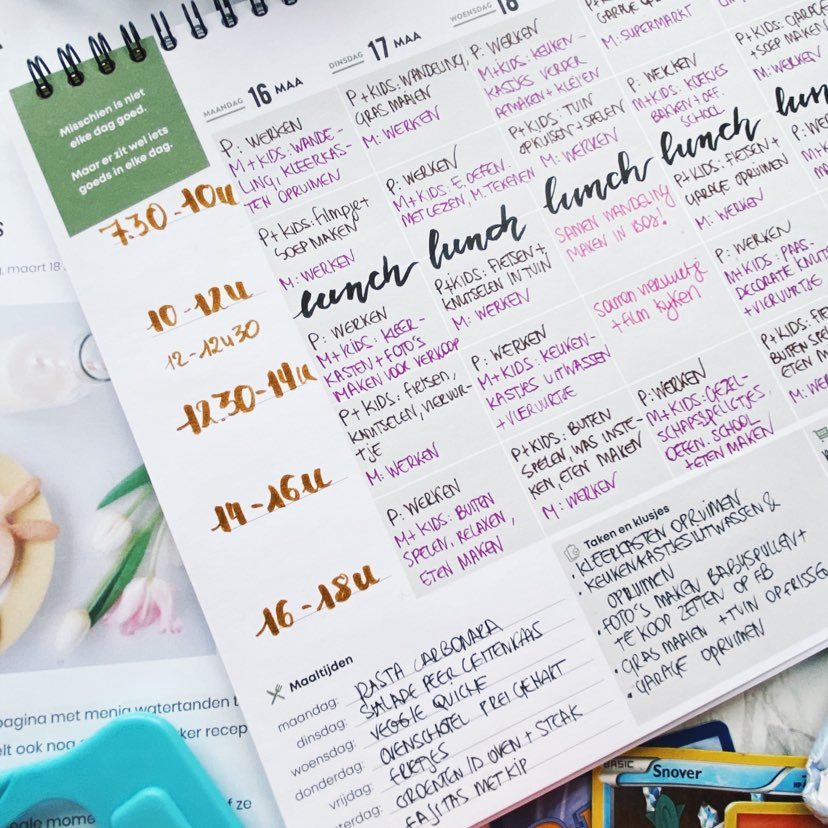 Misschien is niet
elke dag goed.
Maar er zit wel iets
goeds in elke dag.
MAANDAG 16 MAA
DINSDAG 17 MAA
WOENSDAG 18
7.30-10u
10-12u
12-12u30
12.30-14u
14-16u
16-18u
P: WERKEN
M+KIDS: WANDE-
LING, KLEERKAS-
TEN OPRUIMEN
P+KIDS: FILMPJE+
SOEP MAKEN
M: WERKEN
lunch
P: WERKEN
M+KIDS: KLEER-
KASTEN + FOTO'S
MAKEN VOOR VERKOOP
P+KIDS: FIETSEN,
KNUTSELEN, VIERUUR-
TJE
M: WERKEN
P: WERKEN
M+KIDS: BUITEN
SPELEN, RELAXEN,
ETEN MAKEN
P+KIDS: WANDELING,
GRAS MAAIEN
M: WERKEN
P: WERKEN
M+KIDS: E. OEFEN.
MET LEZEN, M. TEKENEN
lunch
P+KIDS: FIETSEN+
KNUTSELEN IN TUIN
M: WERKEN
P: WERKEN
M+KIDS: KEUKEN-
KASTJES UITWASSEN
+VIERUURTJE
P+KIDS: BUITEN
SPELEN, WAS INSTE-
KEN, ETEN MAKEN
M: WERKEN
P: WERKEN
M+KIDS: KEUKEN-
KASTJES VERDER
AFMAKEN + KLEIEN
P+KIDS: TUIN
OPKUISEN + SPELEN
M: WERKEN
lunch
SAMEN WANDELING
MAKEN IN BOS!
samen vieruurtje
+ film kijken
P: WERKEN
M+KIDS: GEZEL-
SCHAPSSPELLETJES,
OEFEN. SCHOOL
+ETEN MAKEN
GARAGE OPRUIMEN
M: SUPERMARKT
P: WERKEN
M+KIDS: KOEKJES
BAKKEN + OEF.
SCHOOL
lunch
P+KIDS: FIETSEN +
GARAGE OPRUIMEN
M: WERKEN
P: WERKEN
M+KIDS: PAAS-
DECORATIE
+VIERUURTJE
P+KIDS:
BUITEN
ETEN
M:
P+KIDS: GARAGE
+SOEP MAKEN
M: WERKEN
Maaltijden
maandag: PASTA CARBONARA
dinsdag: SALADE PEER GEITENKAAS
woensdag: VEGGIE QUICHE
donderdag: OVENSCHOTEL PREI GEHAKT
vrijdag: FRIETJES
GROENTEN ID OVEN + STEAK
FAJITAS MET KIP
Taken en klusjes
• KLEERKASTEN OPRUIMEN
• KEUKENKASTJES UITWASSEN &
OPRUIMEN
• FOTO'S MAKEN BABYSPULLEN +
TE KOOP ZETTEN OP FB
• GRAS MAAIEN + TUIN
• GARAGE OPRUIMEN
maart 18
pagina met menig watertanden
elt ook nog
ker recep
BASIC
Snover
HP